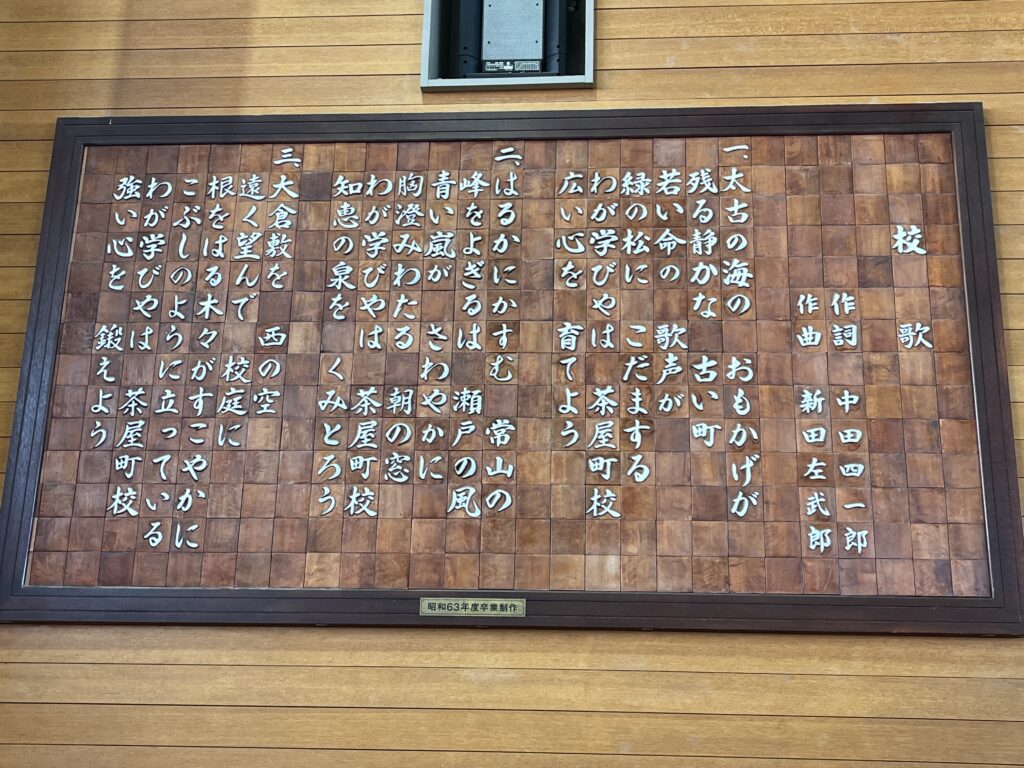 校歌
作詞 中田四一郎
作曲 新田左武郎
一、太古の海の おもかげが
残る静かな 古い町
若い命の 歌声が
緑の松に こだまする
わが学びやは 茶屋町校
広い心を 育てよう
二、はるかにかすむ 常山の
峰をよぎるは 瀬戸の風
青い嵐が さわやかに
胸澄みわたる 朝の窓
わが学びやは 茶屋町校
知恵の泉を くみとろう
三、大倉敷を 西の空
遠く望んで 校庭に
根をはる木々がすこやかに
こぶしのように立っている
わが学びやは 茶屋町校
強い心を 鍛えよう
昭和63年度卒業制作